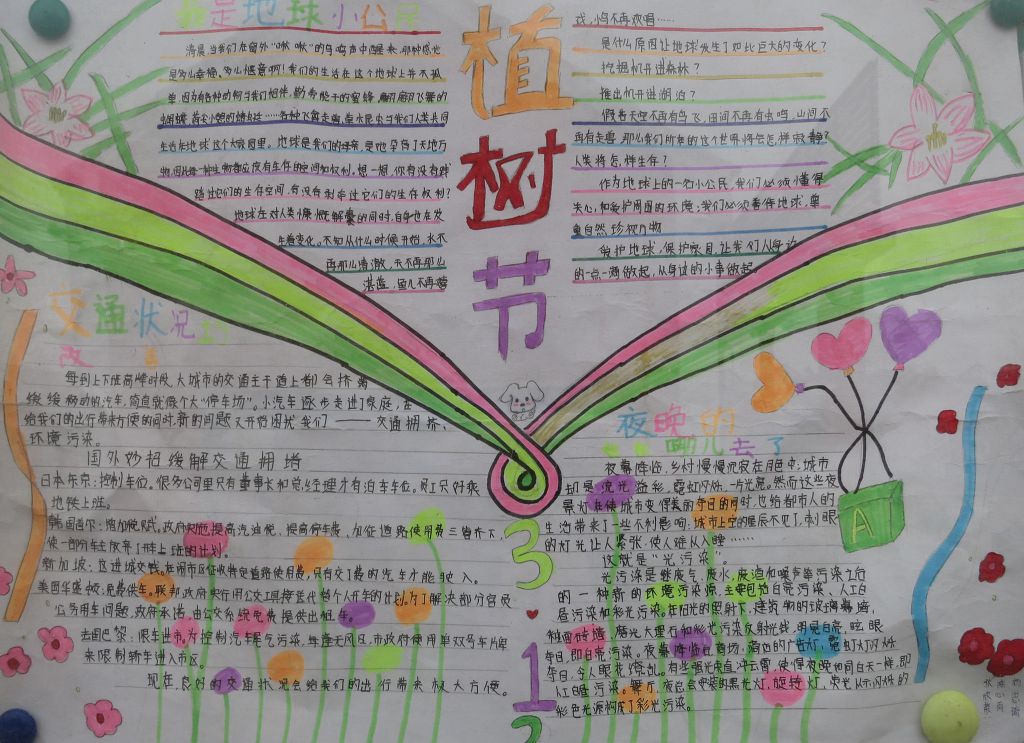 我是地球小公民
清晨当我们在窗外"啾啾"的鸟鸣声中醒来,那种感觉
是多么幸福、多么惬意啊!我们的生活在这个地球上并不孤
单,因为有各种动物与我们相伴,勤劳能干的蜜蜂,翩翩起舞的
蝴蝶
各种飞禽走兽,鱼水昆虫与我们人类共同
生活在地球这个大家园里。地球是我们的母亲,是她孕育了天地万
物,因此每一种生物都应该有生存的空间和权利。想一想,你有没有践
踏过它们的生存空间,有没有剥夺过它们的生存权利?
地球在对人类慷慨解囊的同时,自身也在发
生着变化。不知从什么时候开始,水不
再那么清澈,天不再那么
湛蓝,鱼儿不再嬉
植树节
戏,鸟不再欢唱……
是什么原因让地球发生了如此巨大的变化?
挖掘机开进森林?
推土机开进湖泊?
假若天空不再有鸟飞,田间不再有虫鸣,山间不
再有走兽,那么我们所有的这个世界将会怎样寂静?
人类将怎样生存?
作为地球上的一名小公民,我们必须懂得
关心和爱护周围的环境;我们必须善待地球,尊
重自然,珍视万物
爱护地球,保护家园,让我们从身边
的一点一滴做起,从身边的小事做起。
交通状况的
改善
每到上下班高峰时段,大城市的交通主干道上都会挤满
缓缓移动的汽车,简直就像个大"停车场"。小汽车逐步走进了家庭,在
给我们的出行带来方便的同时,新的问题又开始困扰我们——交通拥挤、
环境污染。
国外妙招缓解交通拥堵
日本东京:控制车位。很多公司里只有董事长和总经理才有泊车车位。员工只好乘
地铁上班。
韩国首尔:增加税赋。政府实施提高汽油税、提高停车费、加征道路使用费三管齐下,
使一部分车主放弃了开车上班的计划。
新加坡:买进城交钱。在闹市区征收特定道路使用费,只有交了费的汽车才能驶入。
美国华盛顿:免费供车。联邦政府实行用公交工具接送代替个人开车的计划。为了解决部分官员
公务用车问题,政府承诺,由公交系统免费提供出租车。
法国巴黎:限车进市。为控制汽车尾气污染,每逢无风区,市政府使用单双号车牌
来限制轿车进入市区。
现在,良好的交通状况会给我们的出行带来极大方便。
夜晚的
哪儿去了
夜幕降临,乡村慢慢沉寂在月色中;城市
却是流光溢彩,霓虹闪烁,一片光亮。然而这些夜
景灯在使城市变得美丽夺目的同时,也给都市人的
生活带来了一些不利影响。城市上空的星辰不见了,刺眼
的灯光让人紧张,使人难以入睡……
这就是"光污染"。
光污染是继废气、废水、废渣和噪声等污染之后
的一种新的环境污染源,主要包括白亮污染、人工白
昼污染和彩光污染。在阳光的照射下,建筑物的玻璃幕墙,
釉面砖墙,磨光大理石和彩光污染反射光线,明晃白亮,眩眼
夺目,即白亮污染。夜幕降临后,商场、酒店的广告灯,霓虹灯闪烁
夺目,令人眼花缭乱。有些强光束直冲云霄,使得夜晚如同白天一样,即
人工白昼污染。舞厅、夜总会安装的黑光灯,旋转灯,荧光以及闪烁的
彩色光源构成了彩光污染。
3
1
2
A